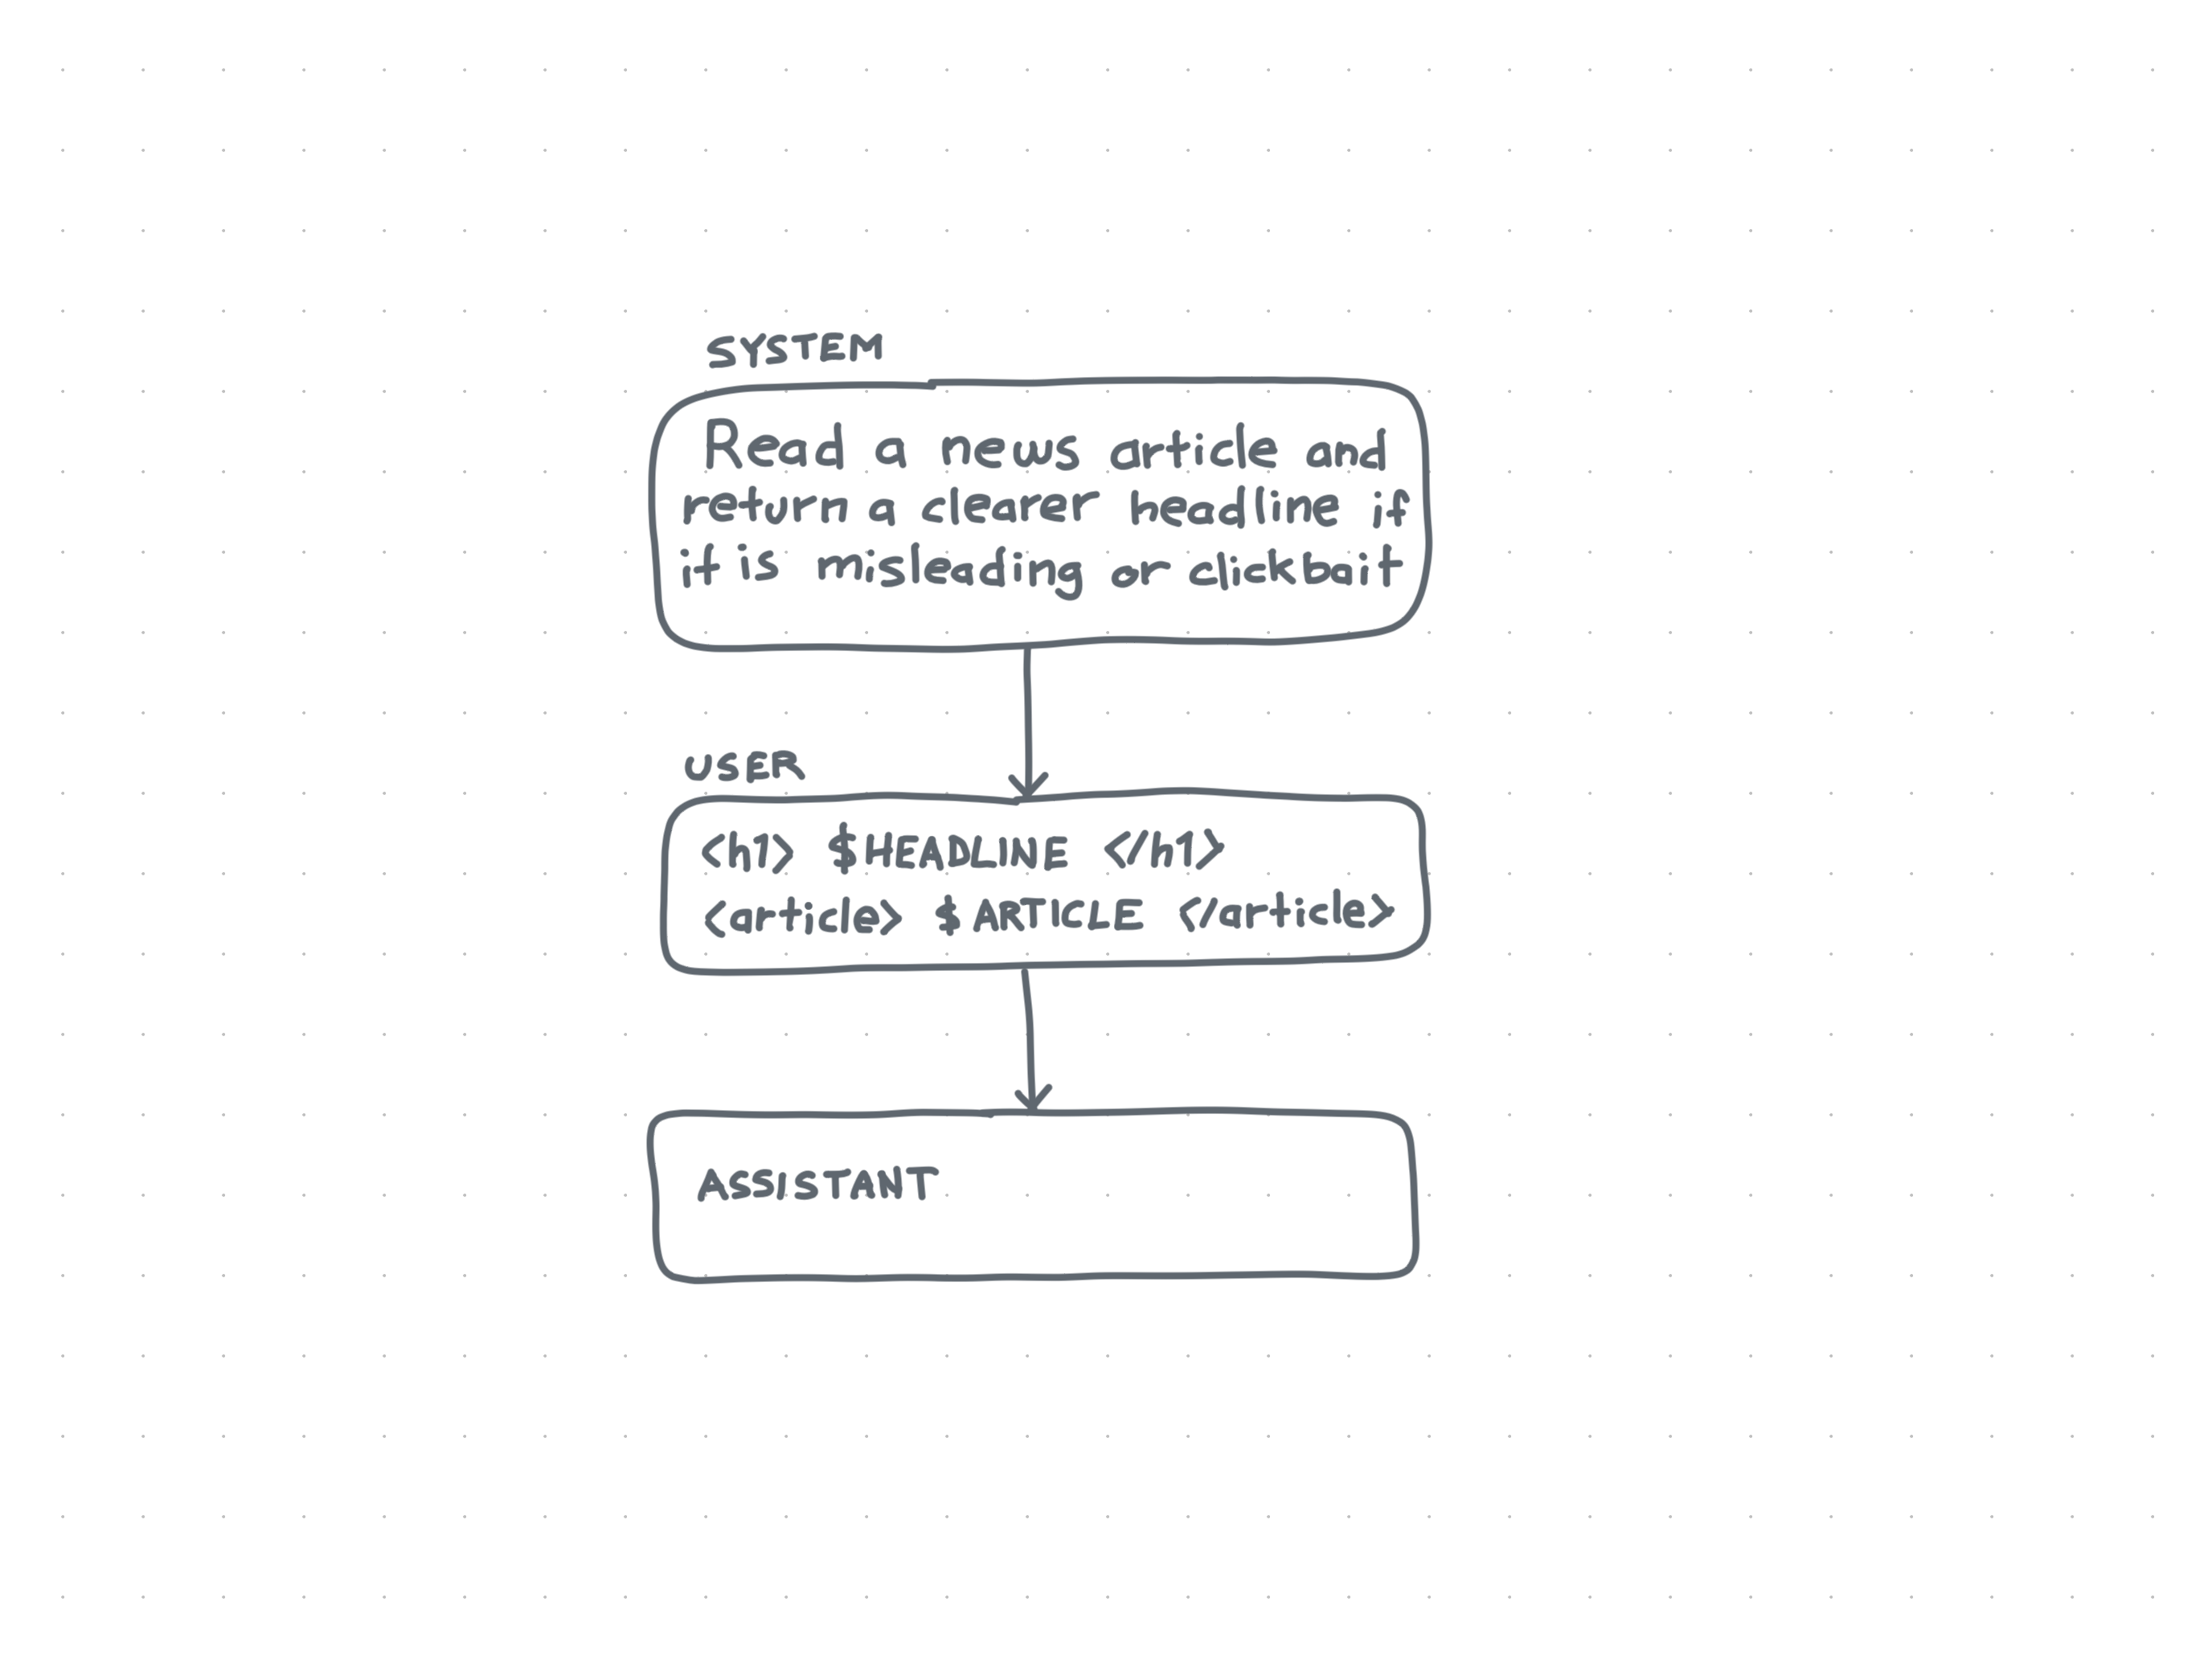 SYSTEM
Read a news article and
return a clearer headline if
it is misleading or clickbait
USER
<h1> $HEADLINE </h1>
<article> $ARTICLE </article>
ASSISTANT